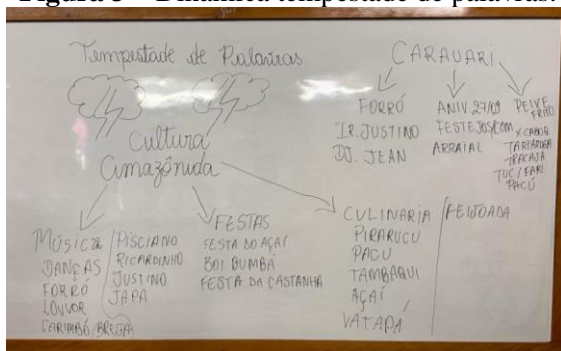 Figura 3 – Dinâmica tempestade de palavras.
Tempestade de Palavras
Cultura
Amazônida
CARAUARI
FORRÓ
IR. JUSTINO
DJ. JEAN
ANIV. 27/09
FESTEJOS/COM
ARRAIAL
PEIXE
FRITO
X-CABOB
TARTARUGA
TRACAJÁ
TUC/FARI
PACÚ
MÚSICA
DANÇAS
FORRÓ
LOUVOR
CARIMBÓ/BREGA
PISCIANO
RICARDINHO
JUSTINO
JAPA
FESTAS
FESTA DO AÇAÍ
BOI BUMBÁ
FESTA DA CASTANHA
CULINARIA
PIRARUCU
PACU
TAMBAQUI
AÇAÍ
VATAPÁ
FEIJOADA